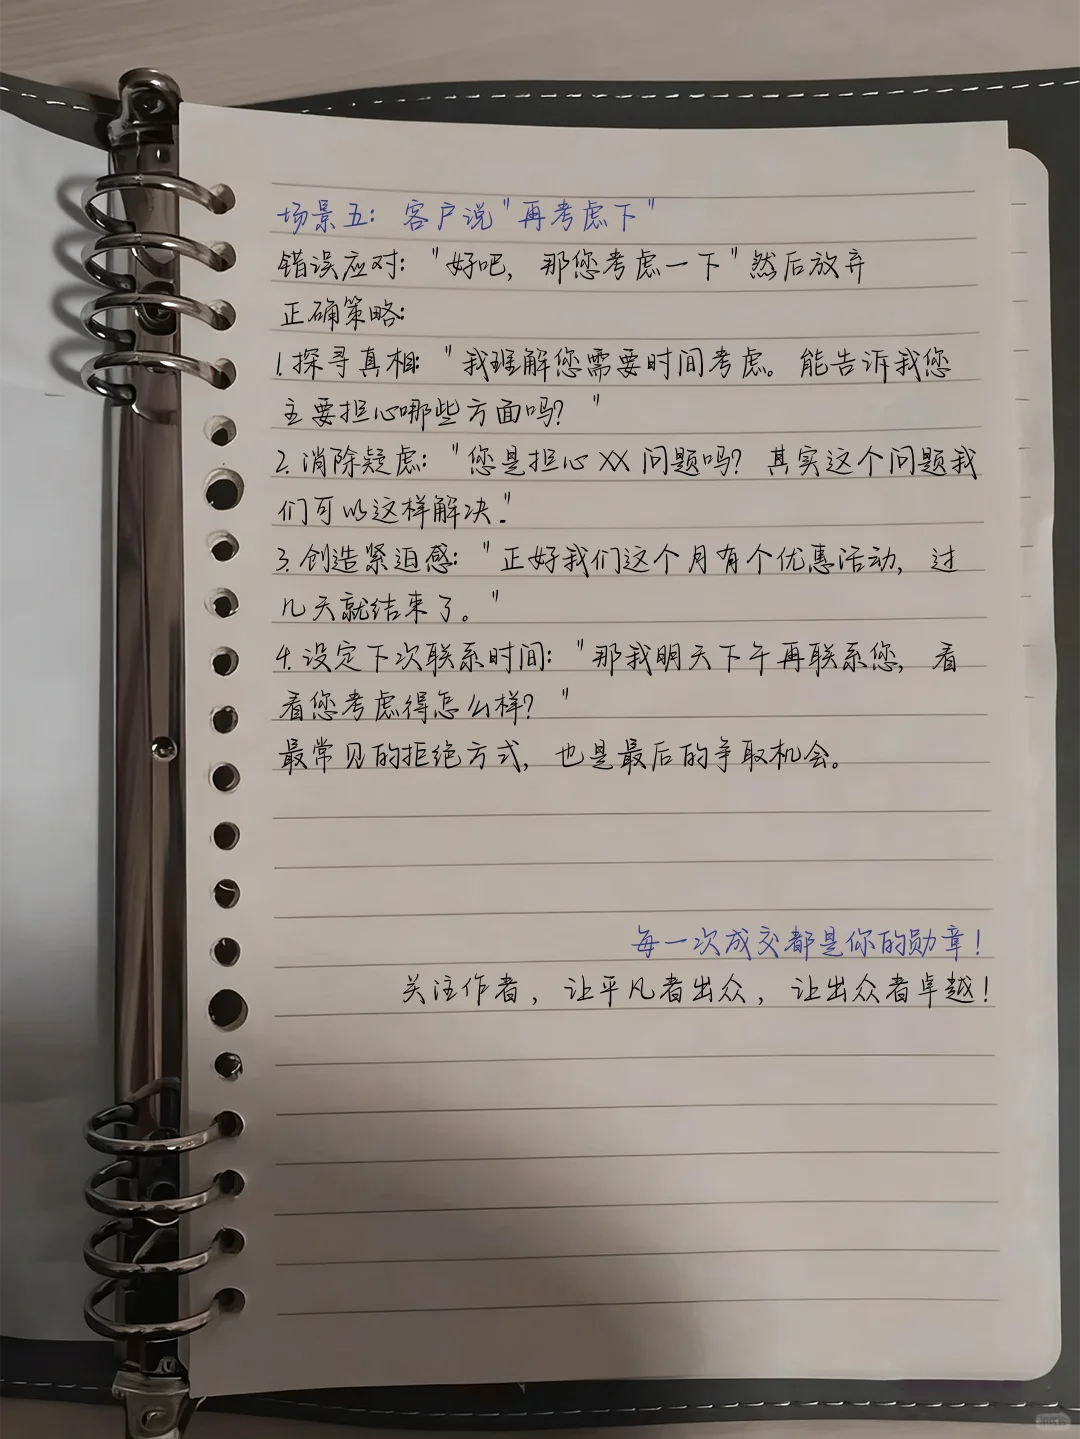 场景五：客户说"再考虑下"
错误应对："好吧，那您考虑一下"然后放弃
正确策略：
1.探寻真相："我理解您需要时间考虑。能告诉我您
主要担心哪些方面吗？"
2.消除疑虑："您是担心XX问题吗？其实这个问题我
们可以这样解决."
3.创造紧迫感："正好我们这个月有个优惠活动，过
几天就结束了。"
4.设定下次联系时间："那我明天下午再联系您，看
看您考虑得怎么样？"
最常见的拒绝方式，也是最后的争取机会。
每一次成交都是你的勋章！
关注作者，让平凡者出众，让出众者卓越！